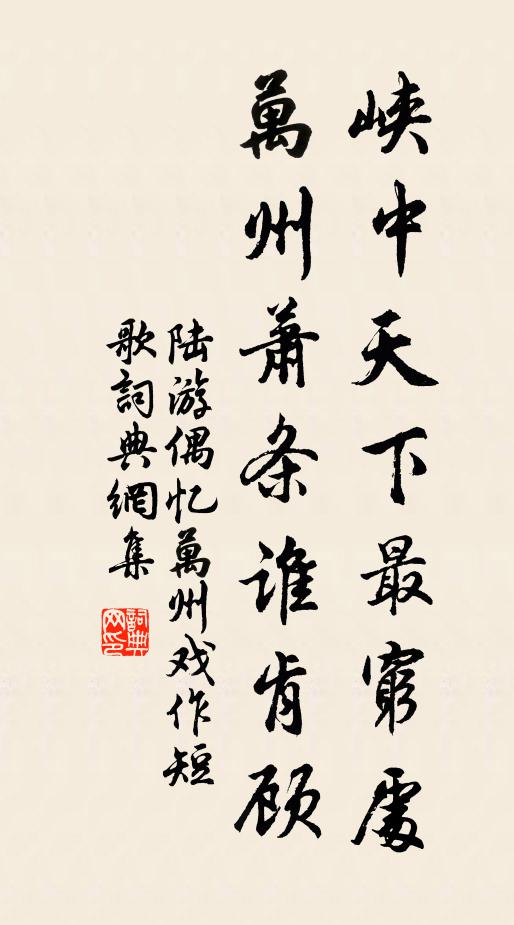 峡中天下最窮處
萬州蕭条誰肯顾
陆游偶忆萬州戏作短
歌詞典網集
詞典
网印